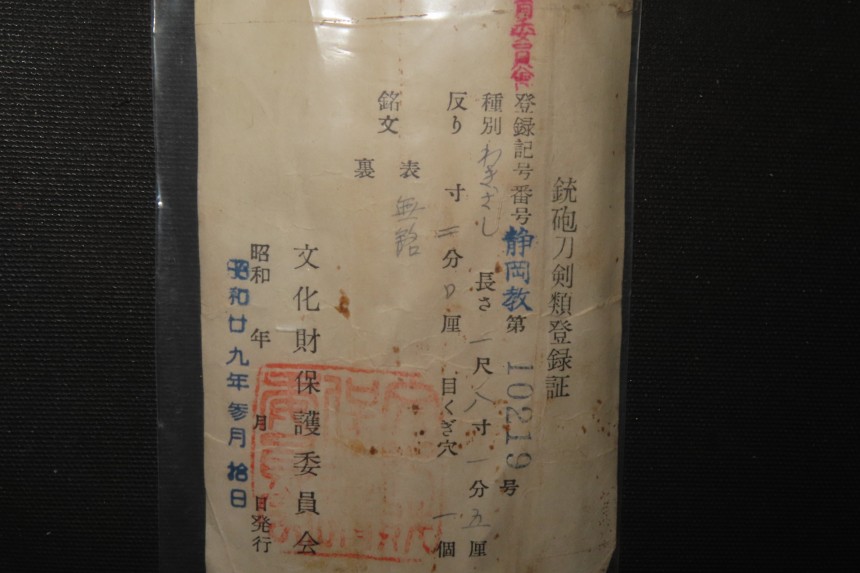 銃砲刀剣類登録証
育委員會
登録記号番号 静岡教 第 10219 号
種別 わきざし 長さ 一尺八寸一分五厘
反り 寸二分0厘 目くぎ穴 一個
銘文 表 無銘
裏
文化財保護委員会
昭和 年 月 日発行
昭和廿九年参月拾日